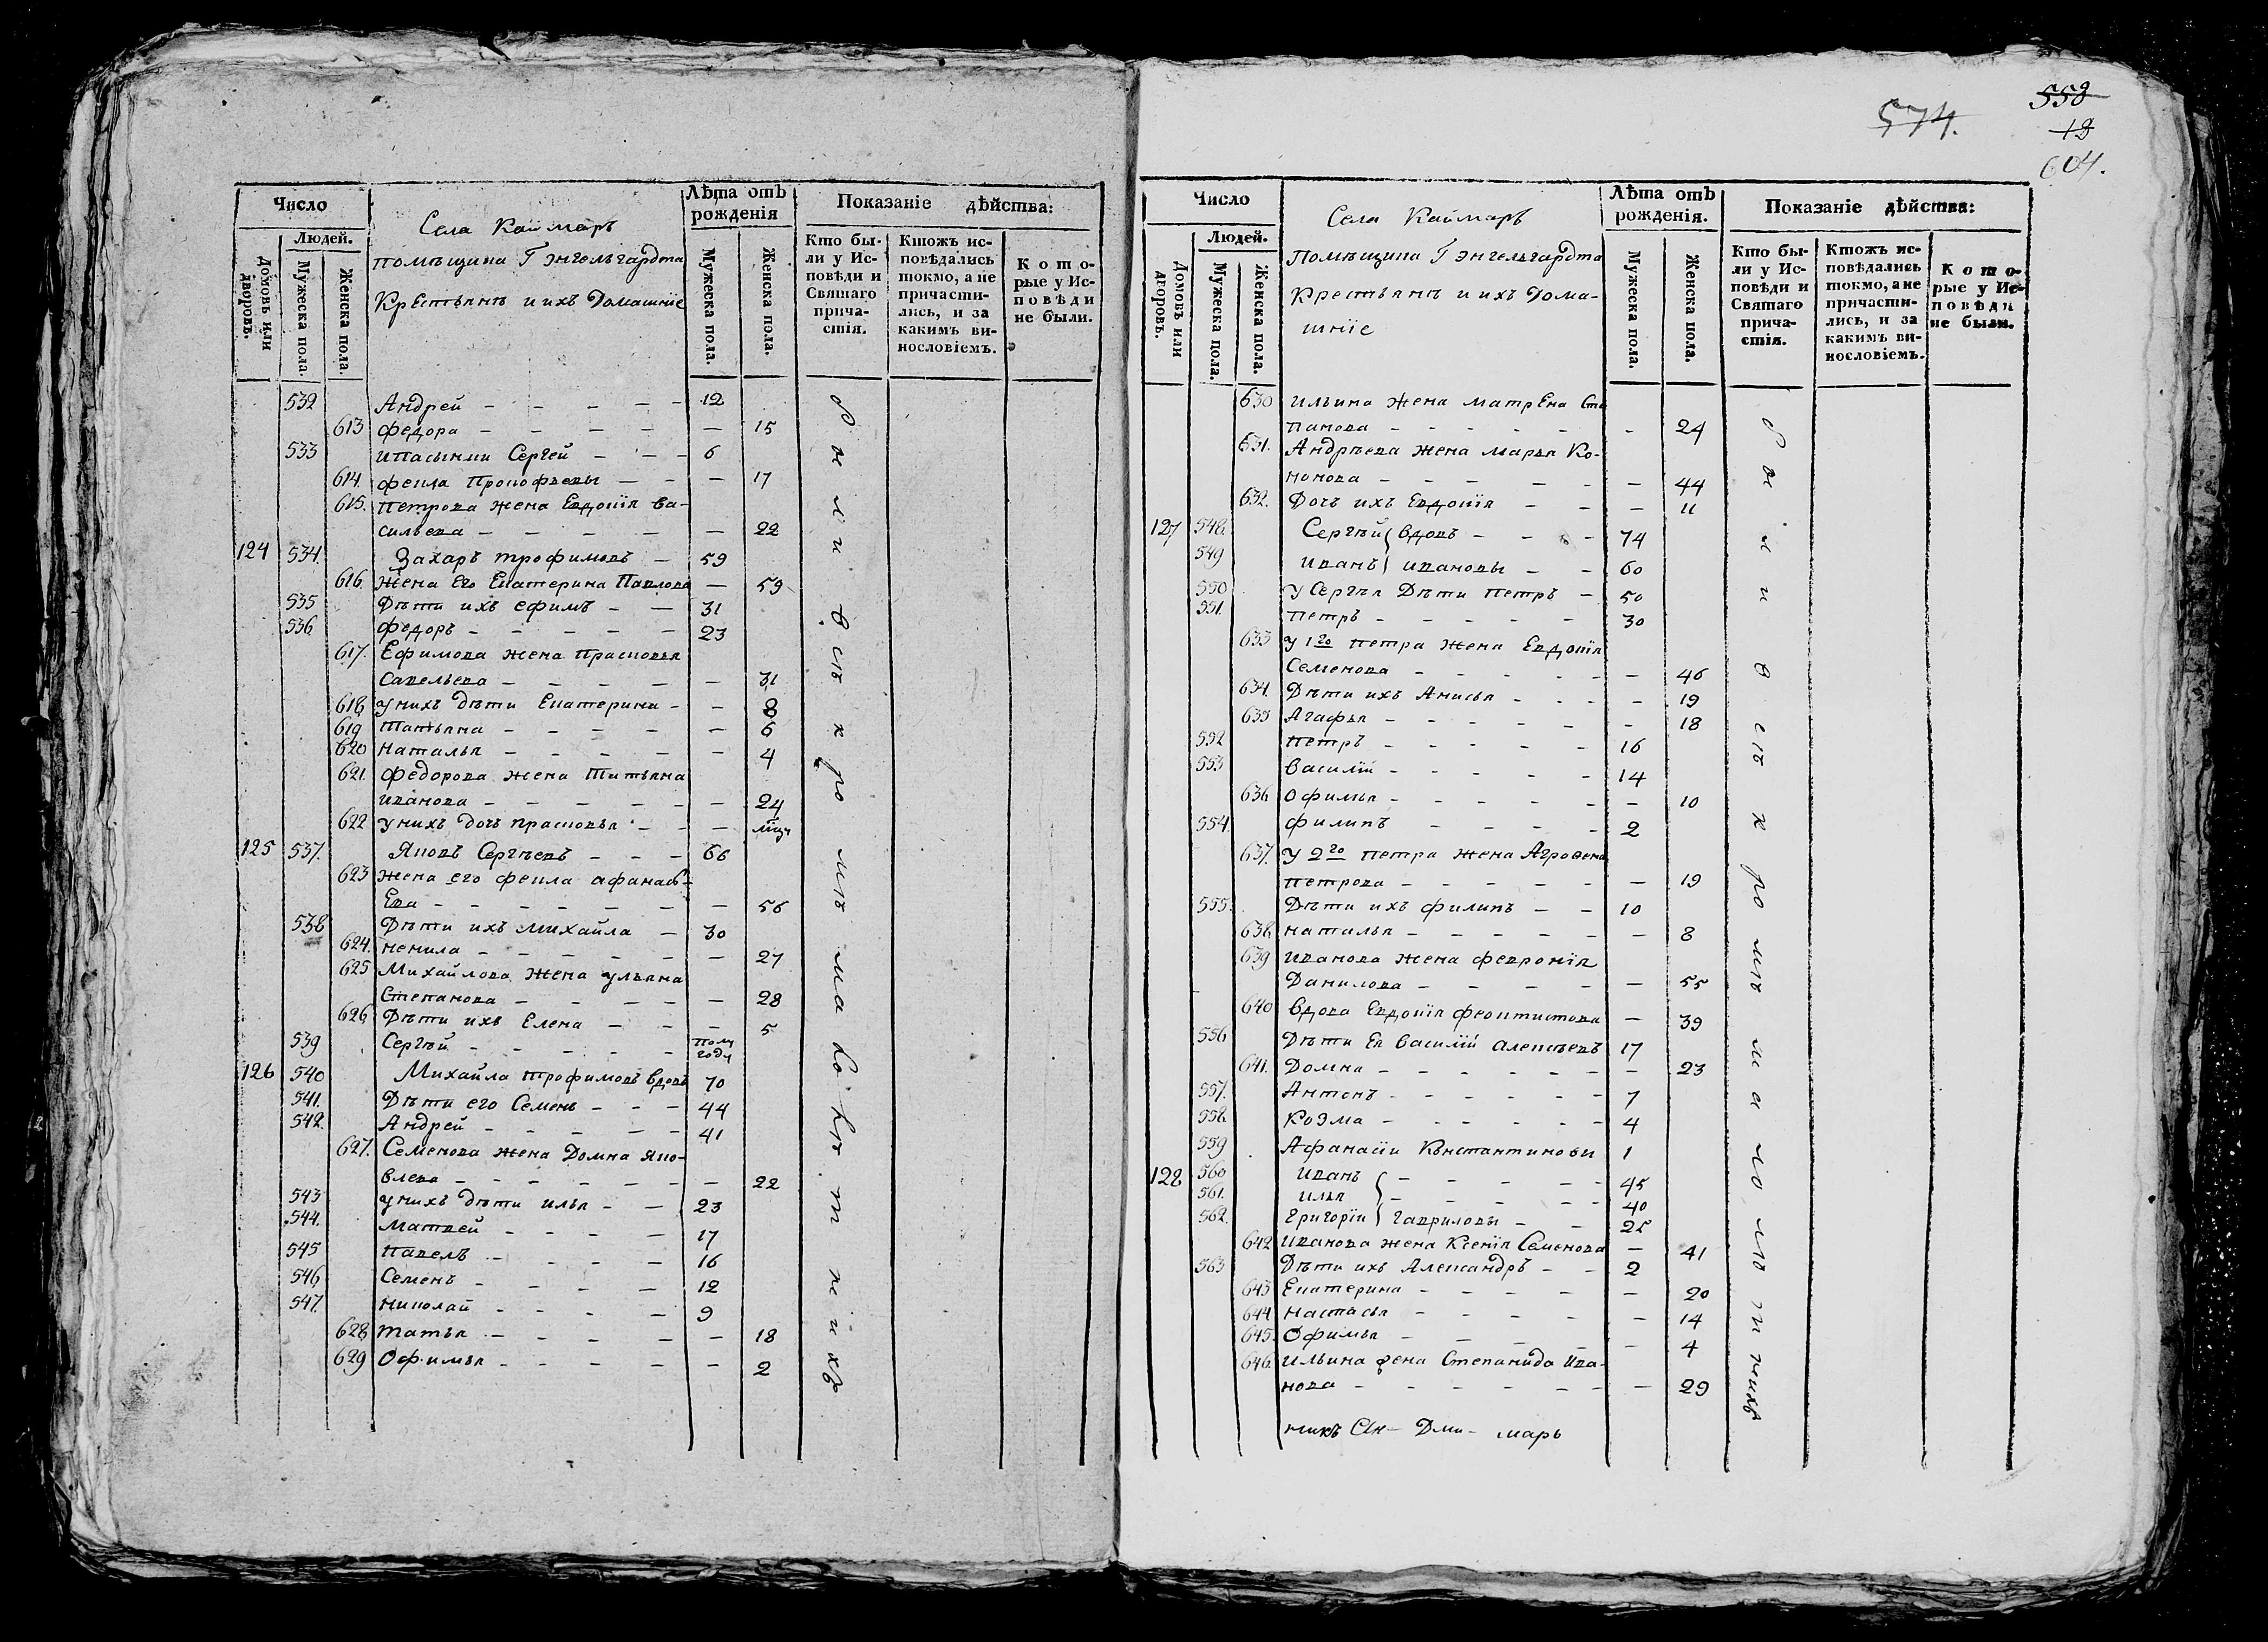 558
12
574.
604.
Число
Людей.
Домовъ или дворовъ.
Мужеска пола.
Женска пола.
Села Каймаръ
помѣщика Г Энгельгардта
Крестьянѣ и ихъ Домашніе
Лѣта отъ рожденія
Мужеска пола.
Женска пола.
Показаніе дѣйства:
Кто бы-
ли у Ис-
повѣди и
Святаго
прича-
стія.
Ктожъ ис-
повѣдались
токмо, а не
причасти-
лись, и за
какимъ ви-
нословіемъ.
К о т о-
рые у Ис-
п о в ѣ д и
не были.
532 Андрей – – – – – 12
613 Федора – – – – – 15
533 Сергей – – – 6
614. фекла Прокофьевы – – – 17
615. Петрова жена Евдокія Ва-
сильева – – – – – – 22
124 534. Захаръ трофимовъ – 59
616. Жена Его Екатерина Павлова – 59
535 Дѣти ихъ ефимъ – – 31
536 федоръ – – – – – 23
617. Ефимова жена Прасковья
Савельева – – – – – – 31
618 у нихъ дѣти Екатерина – – 8
619 татьяна – – – – – 6
620 наталья – – – – – 4
621 федорова жена Татьяна
иванова – – – – – – 24
622 у нихъ дочь прасковья – – –
125 537. Яковъ Сергѣевъ – – – 66
623 жена его фекла афанась-
Ева – – – – – – – 56
538 Дѣти ихъ Михайла – 30
624. ненила – – – – – – 27
625 Михайлова жена ульяна
Степанова – – – – – 28
626 Дѣти ихъ Елена – – – 5
539 Сергѣй – – – – – полу году
126 540 Михайла трофимовъ вдовъ 70
541. Дѣти его Семенъ – – – 44
542. Андрей – – – – – 41
627. Семенова жена Домна Яко-
влева – – – – – – – 22
543 у нихъ дѣти илья – – 23
544. Матвей – – – – 17
545 павелъ – – – – 16
546 Семенъ – – – – 12
547. николай – – – – 9
628 татья – – – – – – 18
629 Офимья – – – – – 2
Число
Людей.
Домовъ или дворовъ.
Мужеска пола.
Женска пола.
Села Каймаръ
помѣщика Г Энгельгардта
Крестьянѣ и ихъ Дома-
шніе
Лѣта отъ рожденія.
Мужеска пола.
Женска пола.
Показаніе дѣйства:
Кто бы-
ли у Ис-
повѣди и
Святаго
прича-
стія.
Ктожъ ис-
повѣдались
токмо, а не
причасти-
лись, и за
какимъ ви-
нословіемъ.
К о т о-
рые у Ис-
п о в ѣ д и
не были.
630 ильина жена матрена Сте
панова – – – – – – 24
631. Андрѣева жена марья Ко-
нонова – – – – – – 44
632. Дочь ихъ Евдокія – – – 11
127 548. Сергѣй вдовъ – – – 74
549 иванъ ивановы – – 60
550 у Сергѣя Дѣти петръ – 50
551. петръ – – – – – 30
633 у 1го петра жена Евдокія
Семенова – – – – – – 46
634. Дѣти ихъ Анисья – – – – 19
635 Агафья – – – – – – 18
552 петръ – – – – – 16
553 василій – – – – – 14
636 Офимья – – – – – – 10
554. филипъ – – – – 2
637. у 2го петра жена Аграфена
петрова – – – – – – 19
555. Дѣти ихъ филипъ – – 10
638 наталья – – – – – – 8
639 иванова жена февронія
Данилова – – – – – – 55
640 вдова Евдокія феоктистова – 39
556 Дѣти Ея василій алексѣевъ 17
641. Домна – – – – – – – 23
557. Антонъ – – – – – – 7
558. Козма – – – – – – 4
559 Афанасій Кѣнстантиновы 1
128 560 иванъ – – – – – 45
561. илья – – – – – 40
562. григорій гавриловы – – 25
642 иванова жена Ксенія Семенова – 41
563 Дѣти ихъ Александръ – – 2
643 Екатерина – – – – – – 20
644 настасья – – – – – 14
645. Офимья – – – – – 4
646. ильина жена Степанида Ива-
нова – – – – – – – 29